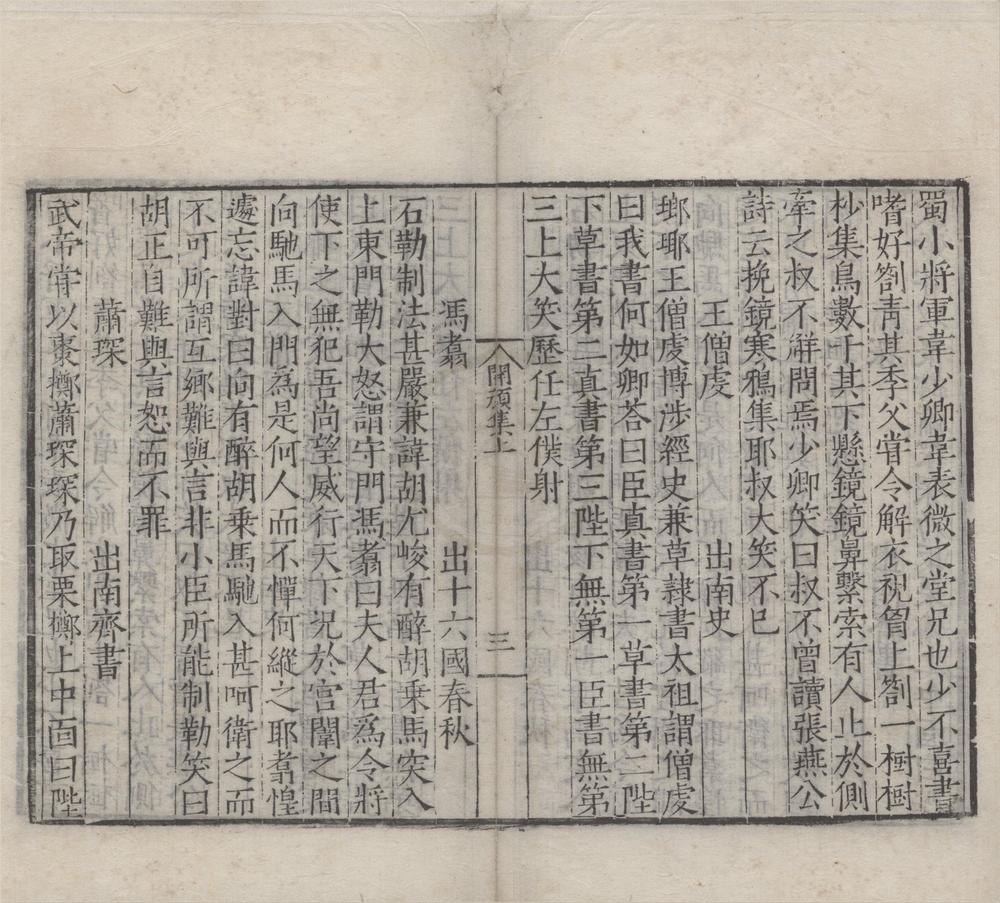 蜀小將軍韋少卿韋表微之堂兄也少不喜書
嗜好劄青其季父甞令解衣視胷上劄一樹樹
杪集鳥數千其下懸鏡鏡鼻繫索有人止於側
牽之叔不觧問焉少卿笑曰叔不曾讀張燕公
詩云挽鏡寒鴉集耶叔大笑不已
王僧虔 出南史
瑯琊王僧虔博涉經史兼草隷書太祖謂僧虔
曰我書何如卿荅曰臣真書第一草書第二陛
下草書第二真書第三陛下無第一臣書無第
三上大笑歷任左僕射
開顔集上 三
馮翥 出十六國春秋
石勒制法甚嚴兼諱胡尤峻有醉胡乗馬突入
上東門勒大怒謂守門馮翥曰夫人君爲令將
使下之無犯吾尚望威行天下况於宫闈之間
向馳馬入門為是何人而不憚何縱之耶翥惶
遽忘諱對曰向有醉胡乗馬馳入甚呵衛之而
不可所謂互鄉難與言非小臣所能制勒笑曰
胡正自難與言恕而不罪
蕭琛 出南齊書
武帝甞以棗擲蕭琛琛乃取栗擲上中面曰陛